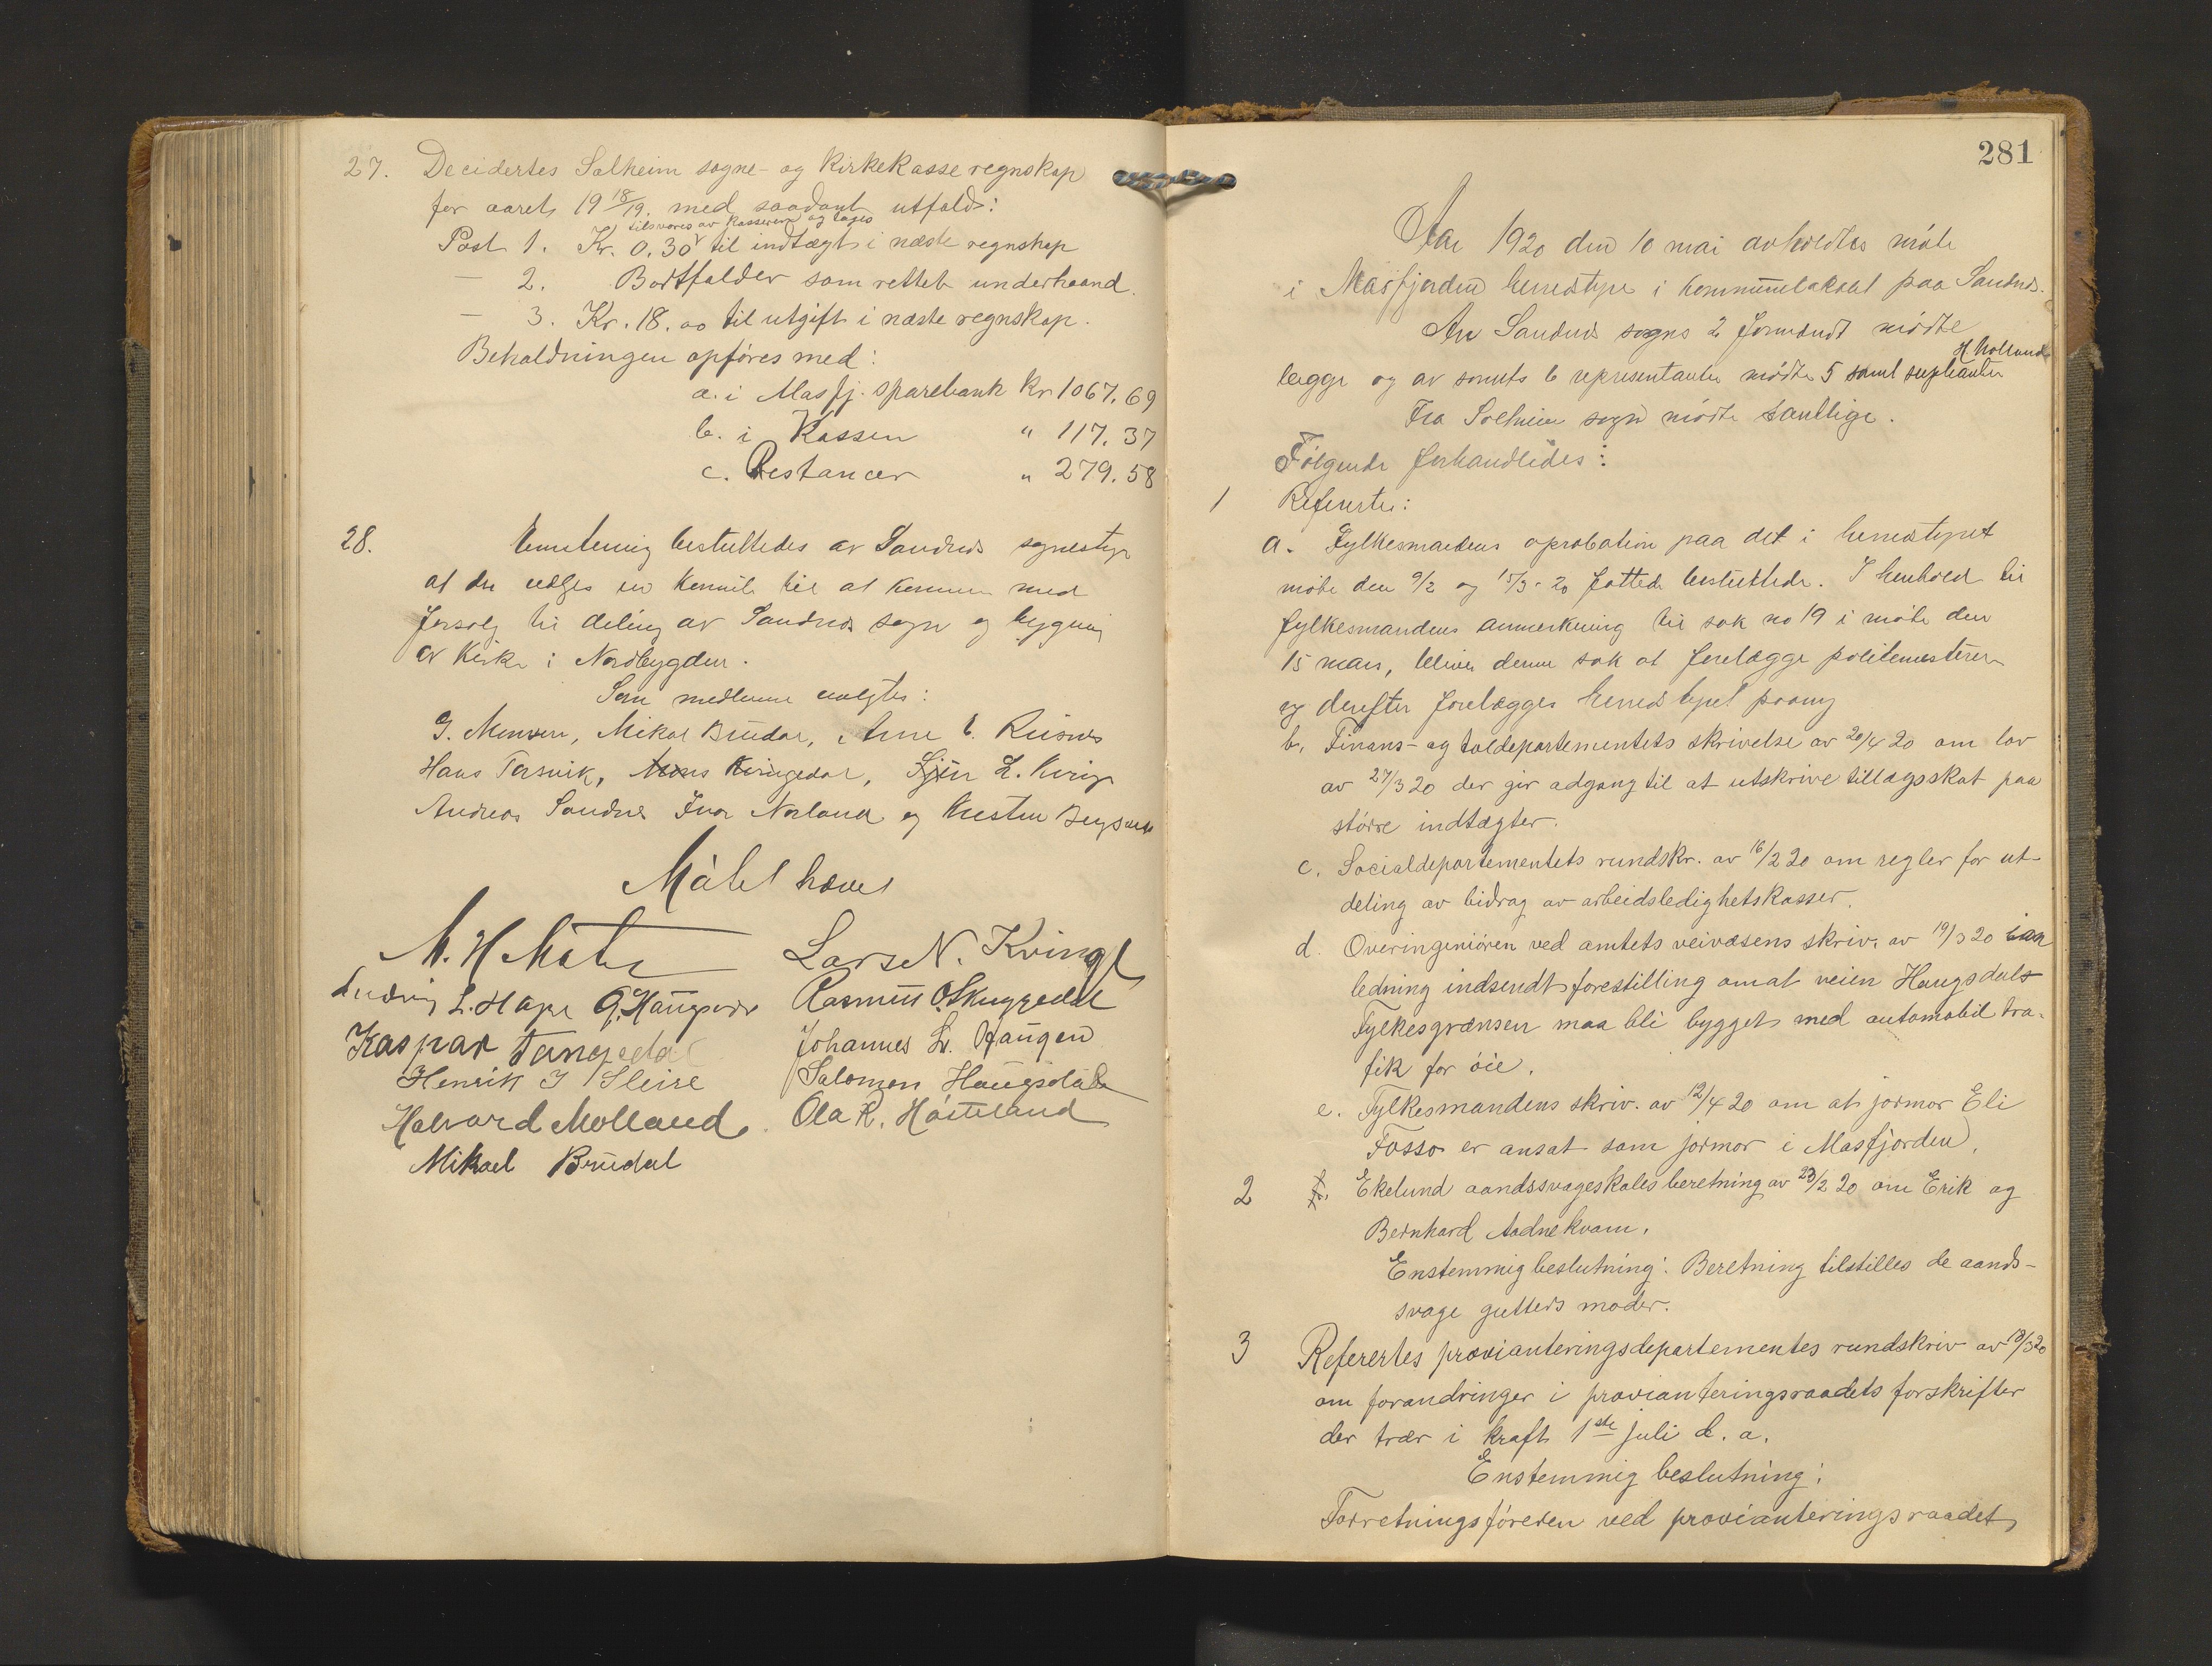 27. Decidertes Solheim sogne- og Kirkekasse regnskap
for aaret 19 18/19. med saadant utfald:
tilsvares av Kassereren og tages
Post 1. Kr. 0.30 til indtægt i næste regnskap
— 2. Bortfalder som rettet underhaand.
— 3. Kr. 18.00 til utgift i næste regnskap.
Beholdningen opføres med:
a. i Masfj. sparebank Kr 1067.69
b. i Kassen " 117.37
c. Restancer " 279.58
28. Enstemmig besluttedes av Sandnes sognestyre
at der vælges en komite til at komme med
forslag til deling av Sandnes sogn og bygning
av Kirke i Nordbygden.
Som medlemmer valgtes:
Mikal Brudal, Arne Risnes
Hans Tersvik, Mons Kvingedal, L. Kvinge
Andreas Sandnes Ivar Norland og
Møtet hævet
M. H Matre Lars N. Kvinge
Ludvig L. Hope Rasmus O. Skuggedal
Kaspar Tangedal Johannes L. Haugen
Henrik J Sleire Salomon Haugsdal
Halvard Molland Ola R. Høiteland
Mikael Brudal
281
Aar 1920 den 10 mai avholdtes møte
i Masfjorden herredstyre i kommunelokalet paa Sandnes.
Av Sandnes sogns 2 formænd møtte
H. Molland
begge og av sognets 6 repræsentanter møtte 5 samt supleanten
Fra Solheim sogn møtte samtlige.
Følgende forhandledes:
1 Referertes:
a. Fylkesmandens aprobation paa det i herredstyret
møte den 9/2 og 15/3-20 fattede besluttede. I henhold til
fylkesmandens anmerkning til sak no 19 i møte den
15 mars, bliver denne sak at forelægge politimesteren
og derefter forelægges herredstyret paany
b. Finans- og toldepartementets skrivelse av 20/4 20 om lov
av 27/3 20 der gir adgang til at utskrive tillægsskat paa
større indtægter.
c. Socialdepartementets rundskr. av 16/2 20 om regler for ut-
deling av bidrag av arbeidsledighetskasser.
d. Overingeniøren ved amtets veivæsens skriv. av 19/3 20 i an
ledning indsendt forestilling om at veien Haugsdal-
Fylkesgrænsen maa bli bygget med automobil tra-
fik for øie.
e. Fylkesmandens skriv. av 12/4 20 om at jormor Eli
Fosso er ansat som jormor i Masfjorden.
2 f. Ekelund aandssvageskoles beretning av 23/2 20 om Erik og
Bernhard Aadnekvam.
Enstemmig beslutning: Beretning tilstilles de aands-
svage gutters moder.
3 Referertes provianteringsdepartementes rundskriv av 13/3 20
om forandringer i provianteringsraadets forskrifter
der trær i kraft 1ste juli d. a.
Enstemmig beslutning:
Forretningsføreren ved provianteringsraadet